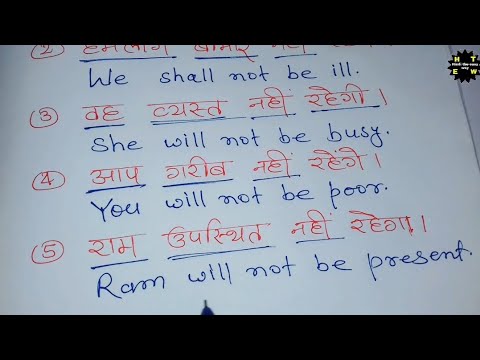 ② हमलोग बीमार नहीं
We shall not be ill.
③ वह व्यस्त नहीं रहेगी।
She will not be busy.
④ आप गरीब नहीं रहेंगे।
You will not be poor.
⑤ राम उपस्थित नहीं रहेगा।
Ram will not be present.
H T
E W